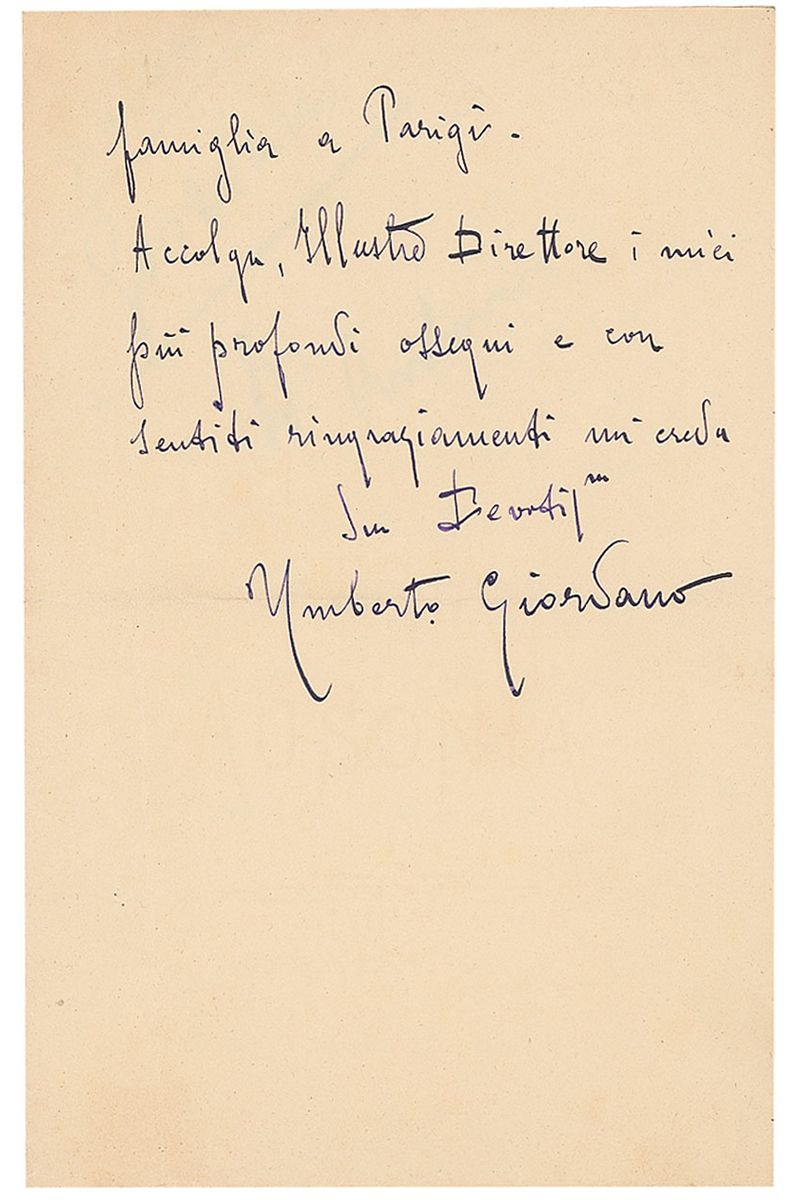 famiglia a Parigi.
Accolga, Illustre Direttore i miei
più profondi ossequi e con
sentiti ringraziamenti mi creda
Suo Devotis mo
Umberto Giordano